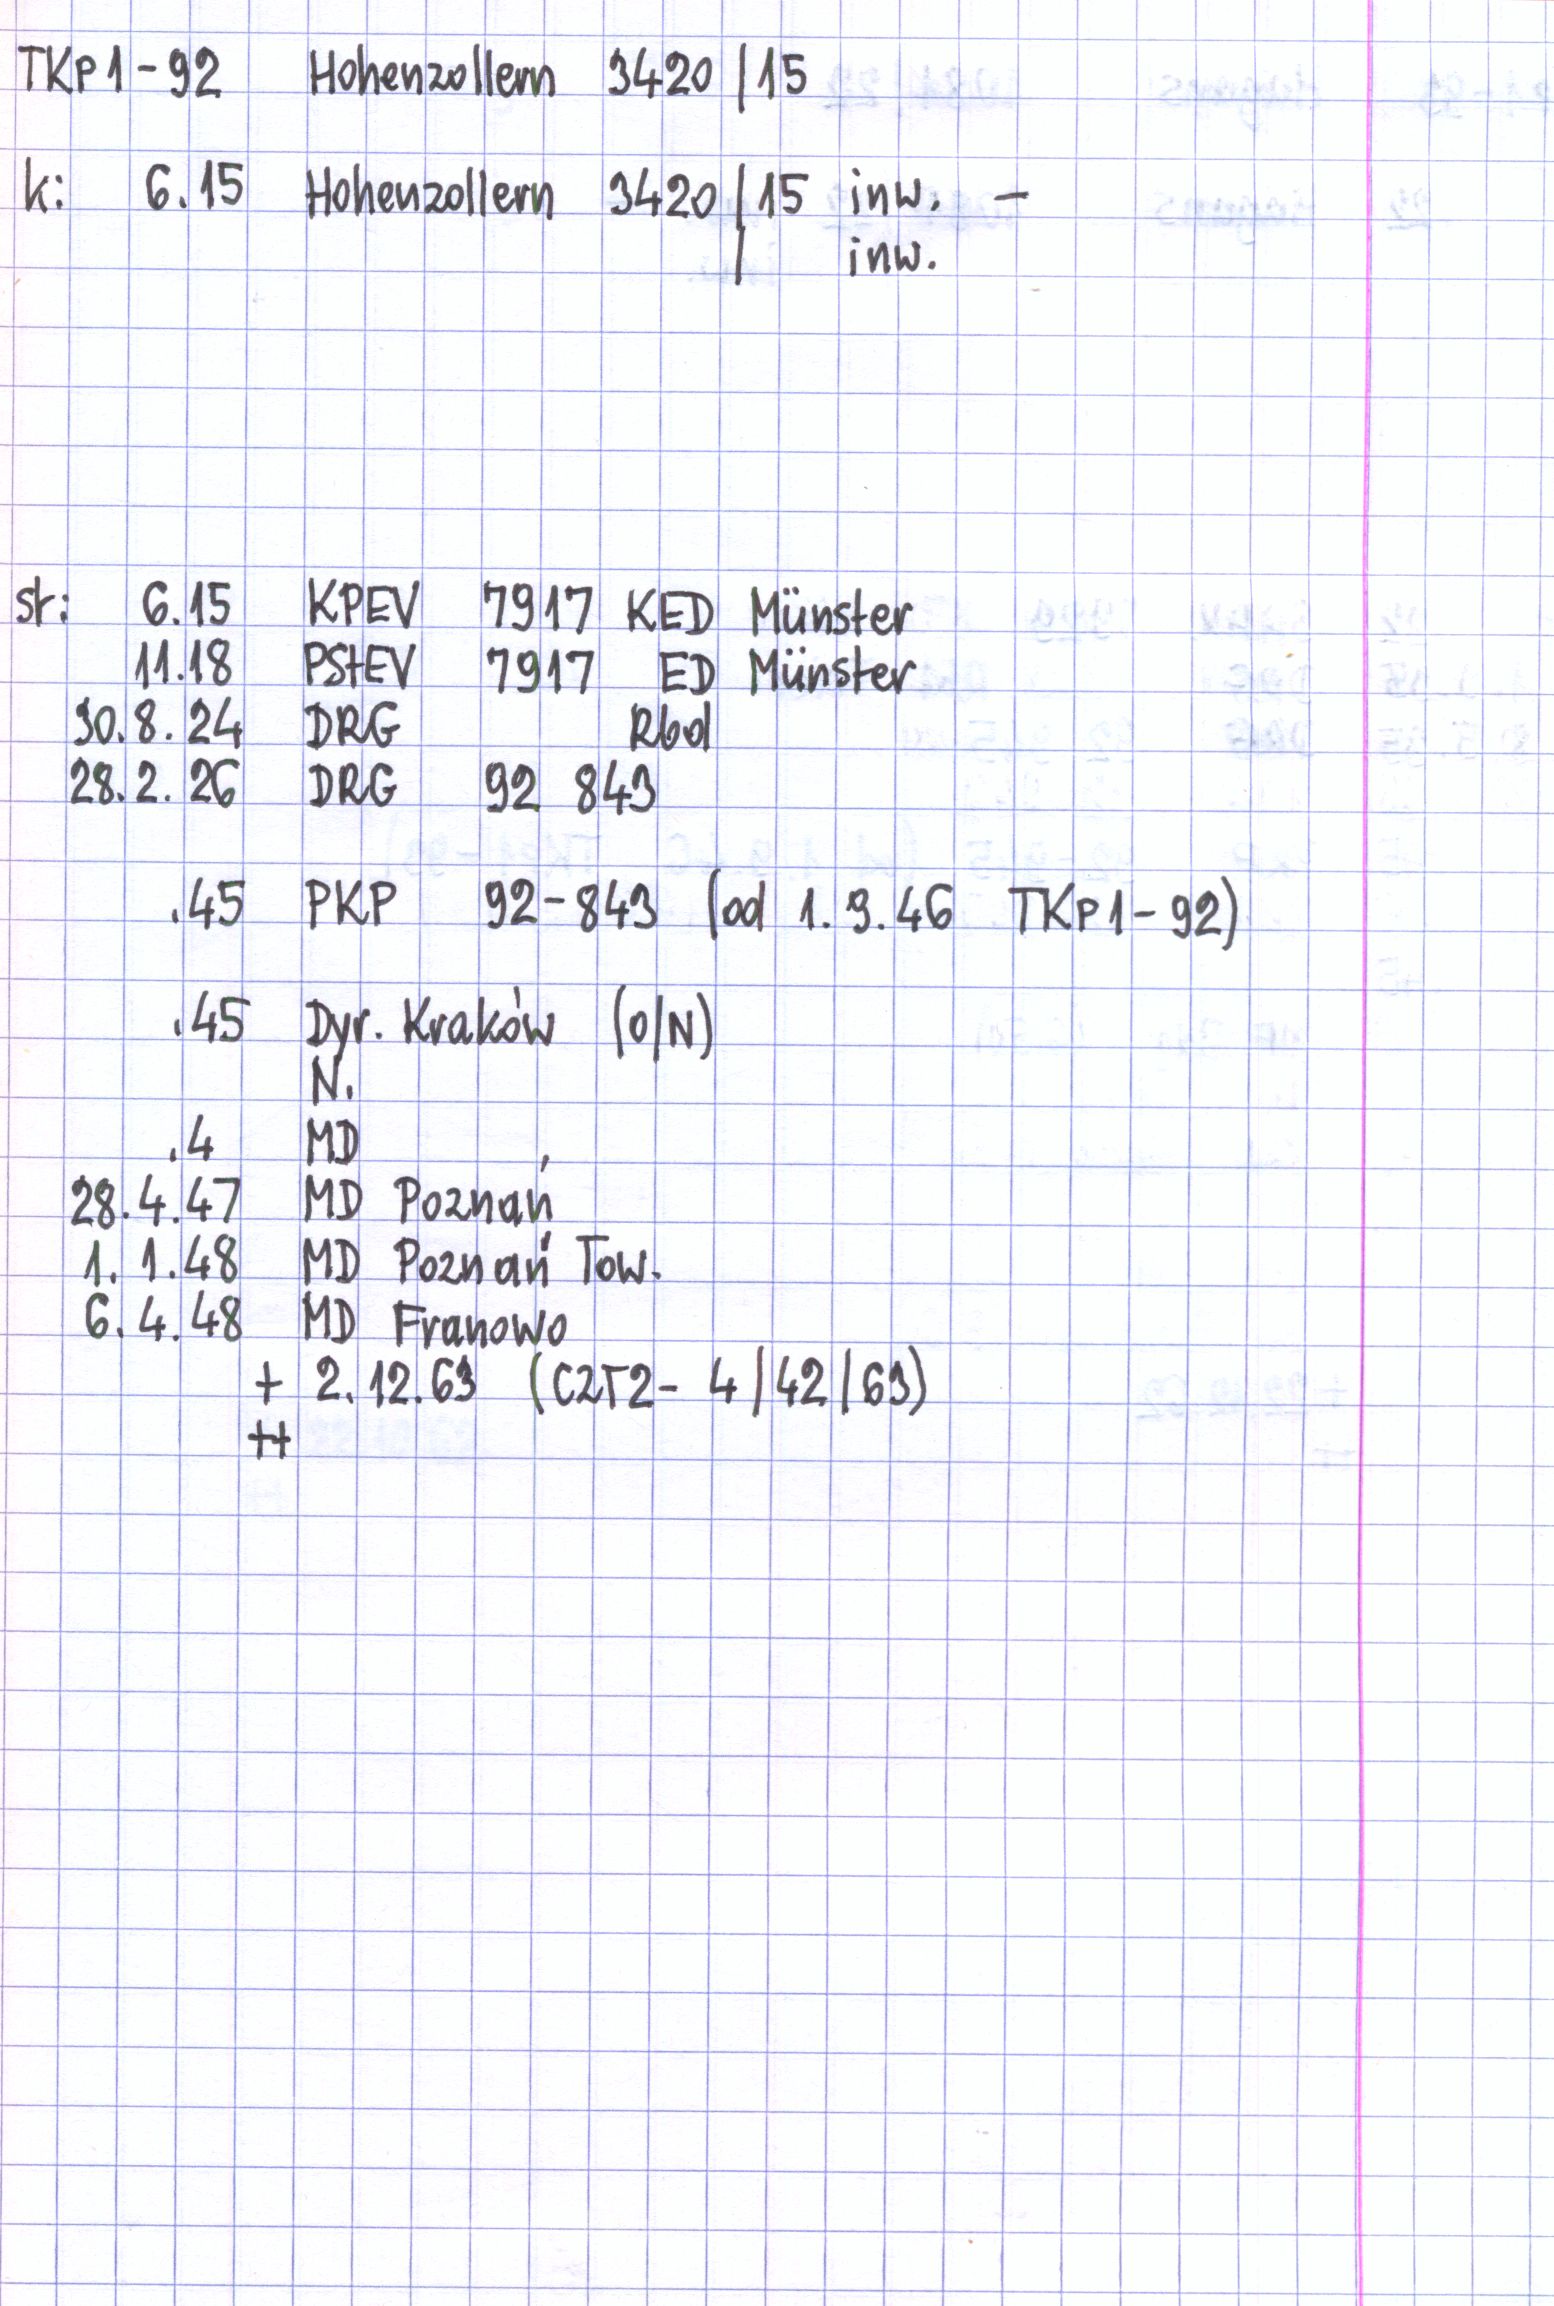 TKp1-92 Hohenzollern 3420/15
k: 6.15 Hohenzollern 3420/15 inw. -
/ inw.
st: 6.15 KPEV 7917 KED Münster
11.18 PStEV 7917 ED Münster
30.8.24 DRG Rbd
28.2.26 DRG 92 843
.45 PKP 92-843 (od 1.9.46 TKp1-92)
.45 Dyr. Kraków (O/N)
N.
.4 MD
28.4.47 MD Poznań
1.1.48 MD Poznań Tow.
6.4.48 MD Franowo
+ 2.12.63 (CZT2- 4/42/63)
++